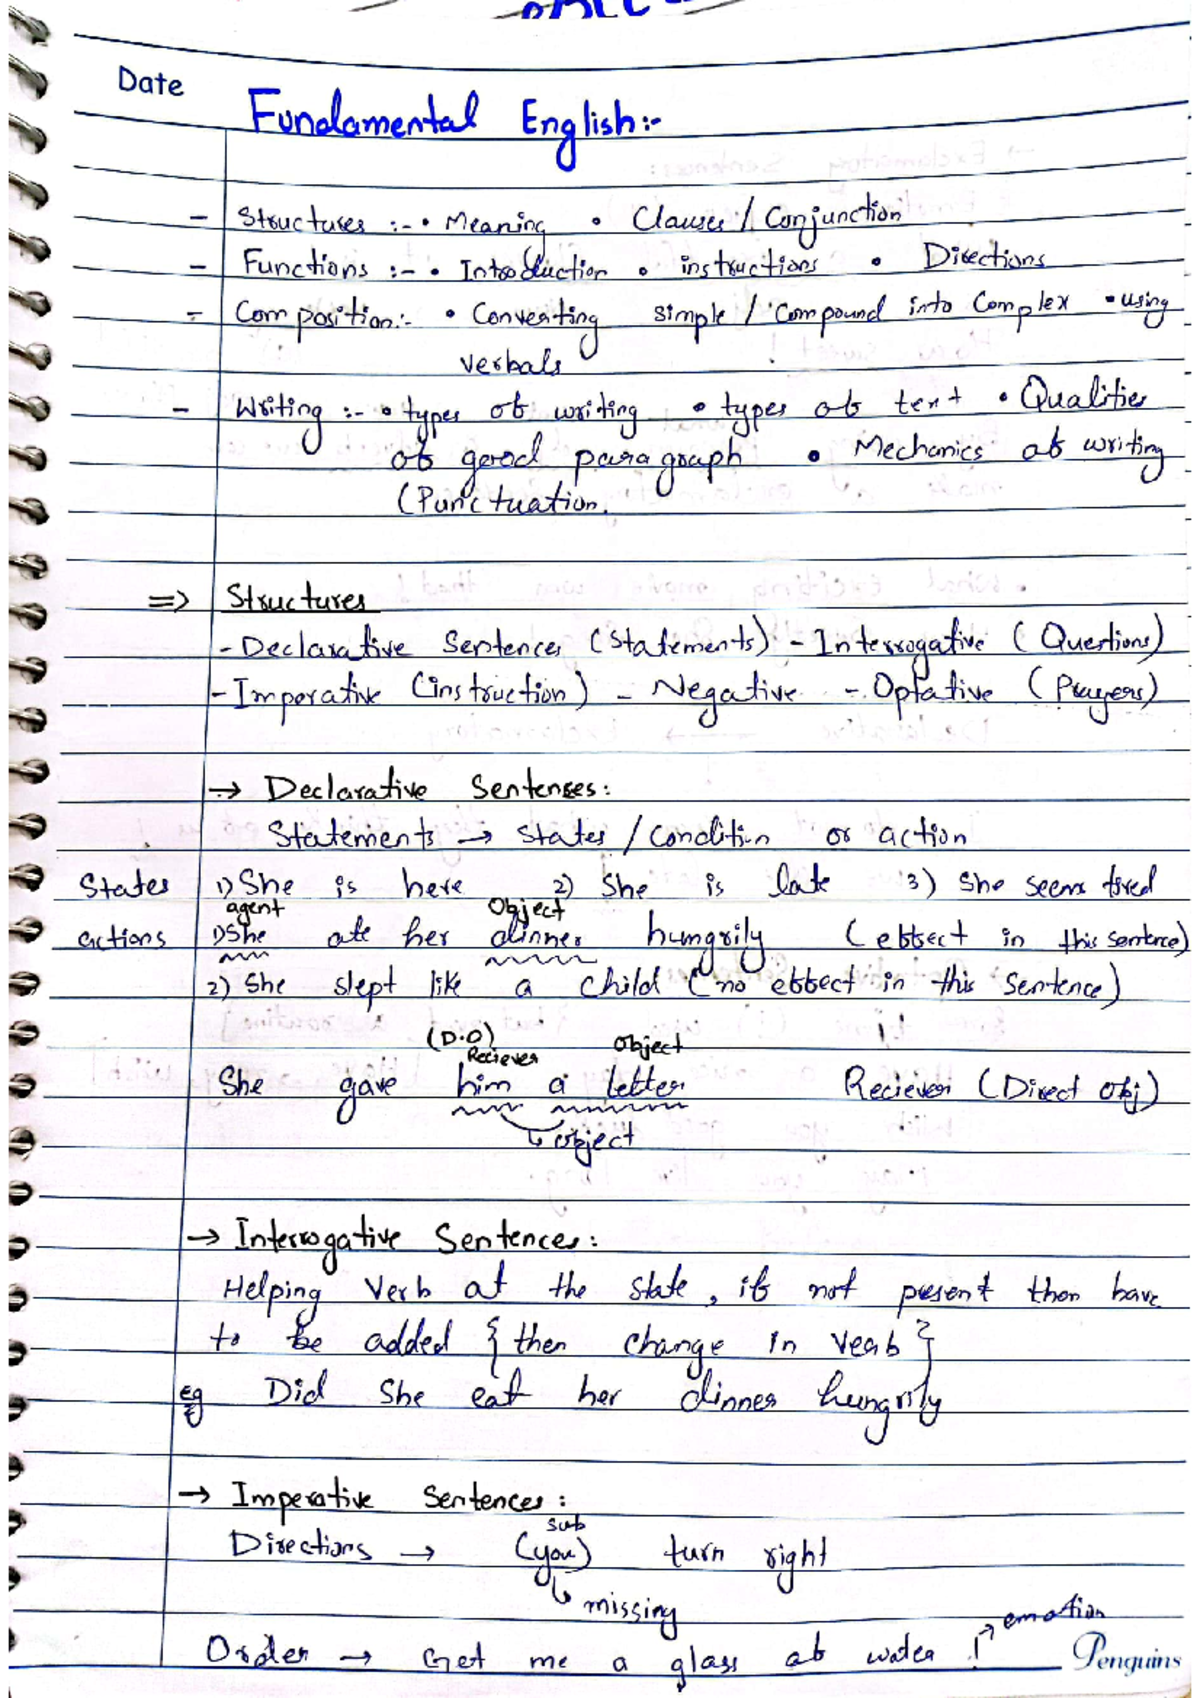 Date
Fundamental English:-
- Structures :- • Meaning • Clauses / Conjunction
- Functions :- • Introduction • instructions • Directions
- Composition:- • Converting simple / Compound into Complex • using
verbals
- Writing :- • types of writing • types of text • Qualities
of good paragraph • Mechanics of writing
(Punctuation.
=> Structures
- Declarative Sentences (Statements) - Interrogative (Questions)
- Imperative (instruction) - Negative - Optative (Prayers)
→ Declarative Sentences:
Statements → States / Condition or action
States 1) She is here 2) She is late 3) She seems tired
agent Object
actions 1) She ate her dinner hungrily (effect in this sentence)
2) She slept like a child (no effect in this sentence)
(D.O)
Reciever object
She gave him a letter Reciever (Direct obj)
↳ object
→ Interrogative Sentences:
Helping Verb at the state, if not present then have
to be added { then change in verb }
eg Did She eat her dinner hungrily
→ Imperative Sentences:
sub
Directions → (you) turn right
↳ missing
→ emotion
Order → Get me a glass of water !
Penguins